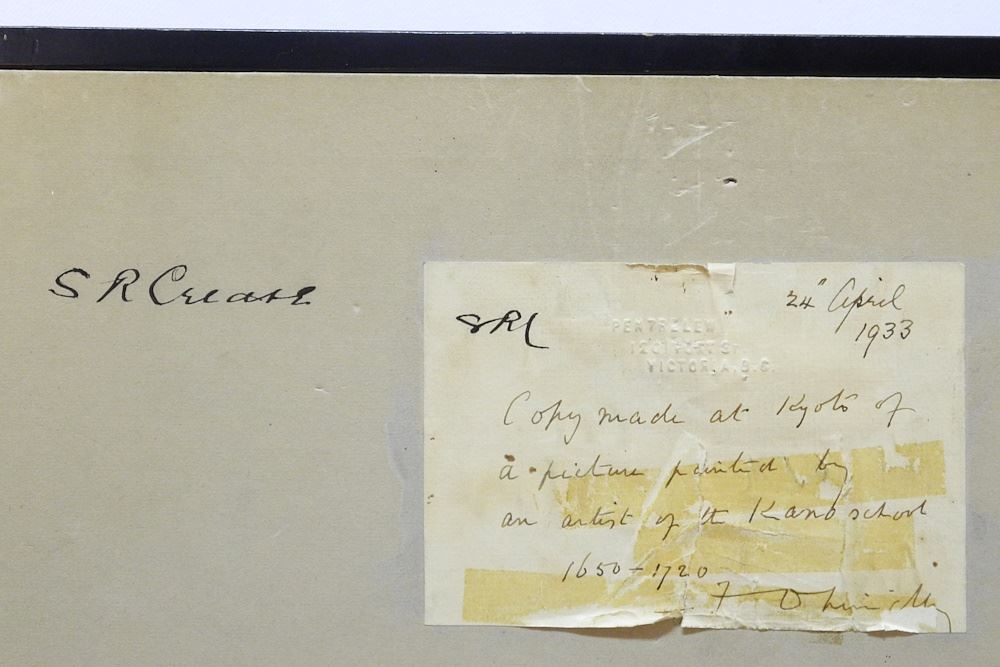 S R Crease
SRC
24" April
1933
PENTRELEW
FORT St.
VICTORIA, B.C.
Copy made at Kyoto of
a picture painted by
an artist of the Kano school
1650 - 1720